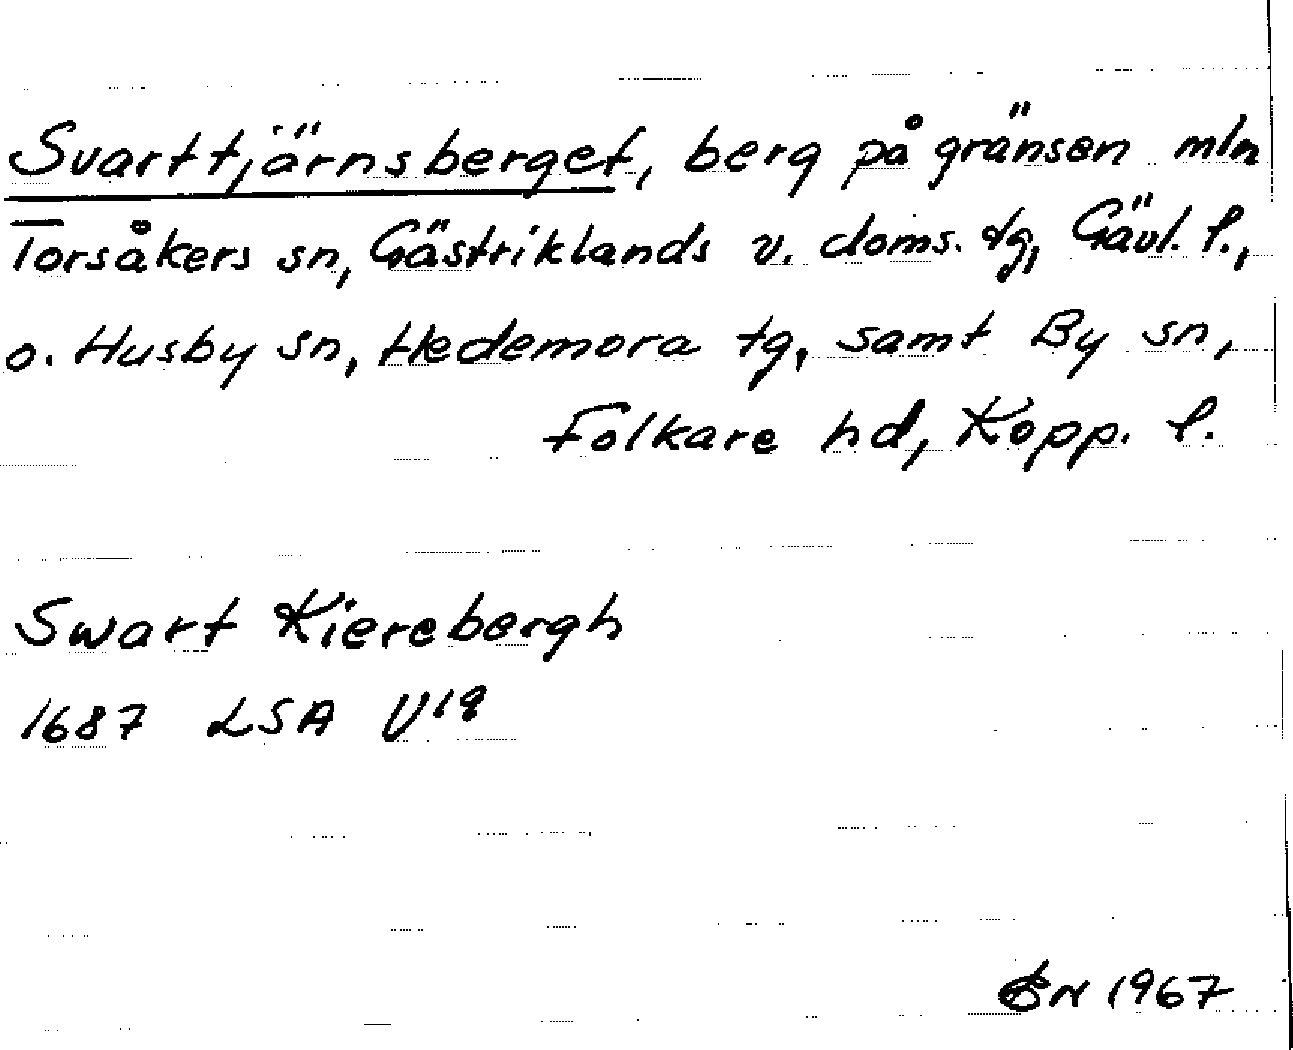 Svarttjärnsberget, berg på gränsen mln
Torsåkers sn, Gästriklands v. doms. tg, Gävl. l.,
o. Husby sn, Hedemora tg, samt By sn,
Folkare hd, Kopp. l.
Swart Kierebergh
1687 LSA U19
1967